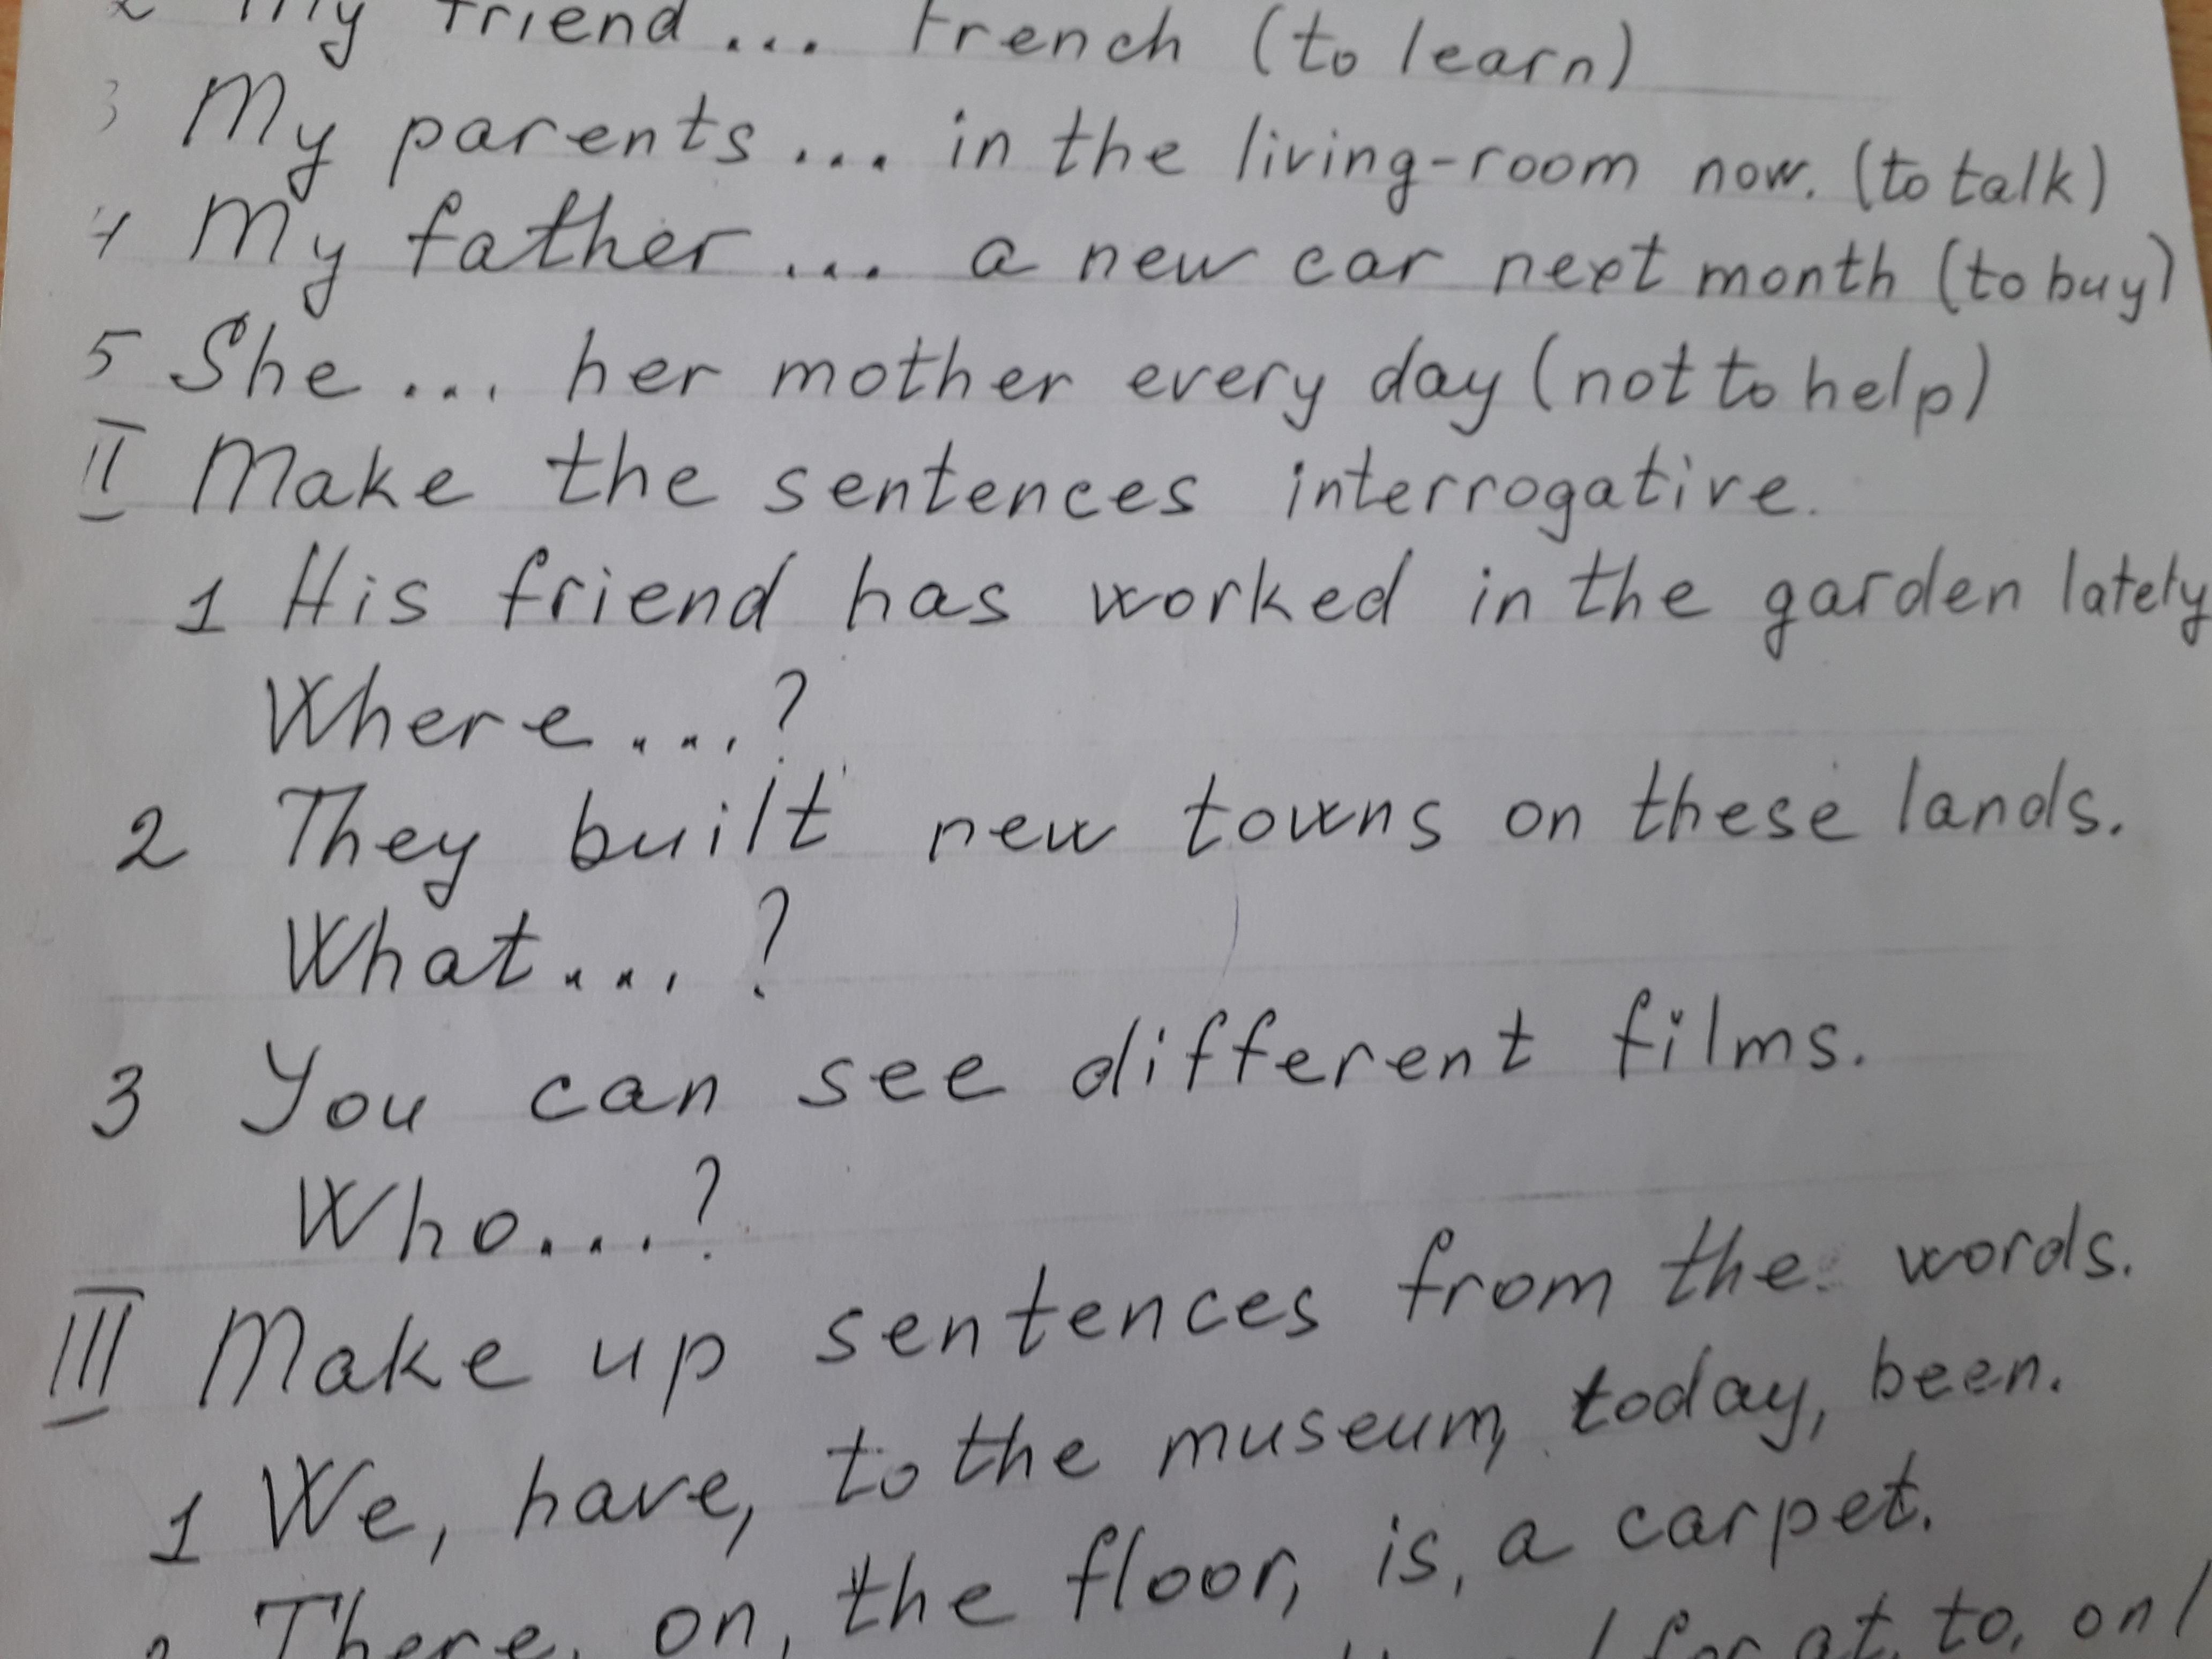 2 My friend ... French (to learn)
3 My parents ... in the living-room now. (to talk)
4 My father ... a new car next month (to buy)
5 She ... her mother every day (not to help)
II Make the sentences interrogative.
1 His friend has worked in the garden lately
Where ...?
2 They built new towns on these lands.
What ...?
3 You can see different films.
Who ...?
III Make up sentences from the words.
1 We, have, to the museum, today, been.
2 There, on, the floor, is, a carpet.
for, at, to, on